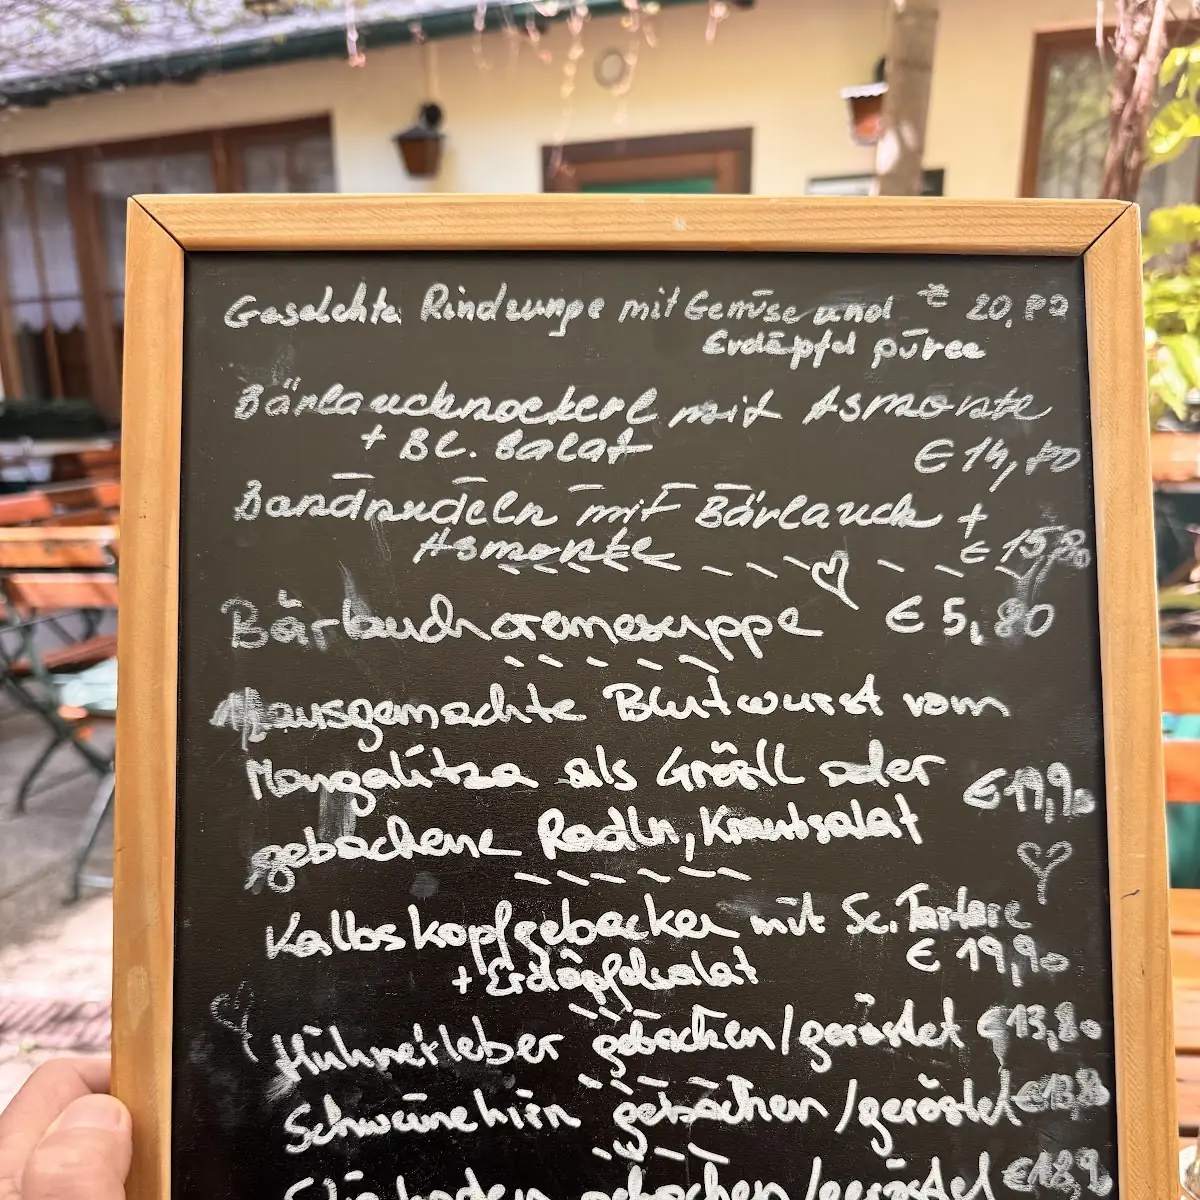 Geselchte Rindszunge mit Gemüse und € 20,80
Erdäpfel püree
Bärlauchnockerl mit Asmonte
+ Bl. Salat € 14,80
Bandnudeln mit Bärlauch +
Asmonte € 15,80
Bärlauchcremesuppe € 5,80
Hausgemachte Blutwurst vom
Mangalitza als Gröstl oder
€ 19,90
gebackene Radln, Krautsalat
Kalbskopf gebacken mit Sc. Tartare
+ Erdäpfelsalat € 19,90
Hühnerleber gebacken/geröstet € 13,80
Schweinehirn gebacken/geröstet € 13,80
gebacken/geröstet € 18,9